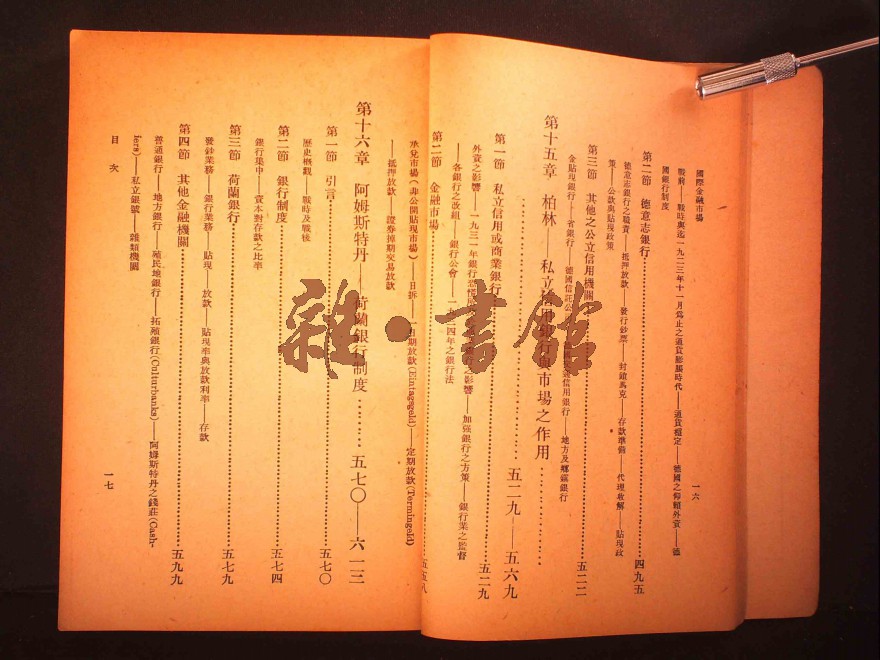 國際金融市場
一六
戰前——戰時與迄一九二三年十一月為止之通貨膨脹時代——通貨穩定——德國之仰賴外資——德
國銀行制度
第二節 德意志銀行⋯⋯四九五
德意志銀行之職責——抵押放款——發行鈔票——封鎖馬克——存款準備——代理收解——貼現政
策——公款與貼現政策
第三節 其他之公立信用機關⋯⋯五二二
金貼現銀行——省銀行——德國信託公
通信用銀行——地方及鄉鎮銀行
第十五章 柏林——私立信用銀行
市場之作用⋯⋯五二九——五六九
第一節 私立信用或商業銀行⋯⋯五二九
外資之影響——一九三一年銀行
之影響——加強銀行之方策——銀行業之監督
——各銀行之改組——銀行公會——一
四年之銀行法
第二節 金融市場⋯⋯五五八
承兌市場(非公開貼現市場)——日拆——一日期放款(Eintagsgeld)——定期放款(Termingeld)
——抵押放款——證券掉期交易放款
第十六章 阿姆斯特丹——荷蘭銀行制度⋯⋯五七〇——六一三
第一節 引言⋯⋯五七〇
歷史概觀——戰時及戰後
第二節 銀行制度⋯⋯五七四
銀行集中——資本對存款之比率
第三節 荷蘭銀行⋯⋯五七九
發鈔業務——銀行業務——貼現——放款——貼現率與放款利率——存款
第四節 其他金融機關⋯⋯五九九
普通銀行——地方銀行——殖民地銀行——拓殖銀行(Culturbanks)——阿姆斯特丹之錢莊(Cash-
fers)——私立銀號——雜類機關
目次
一七
雜·書館